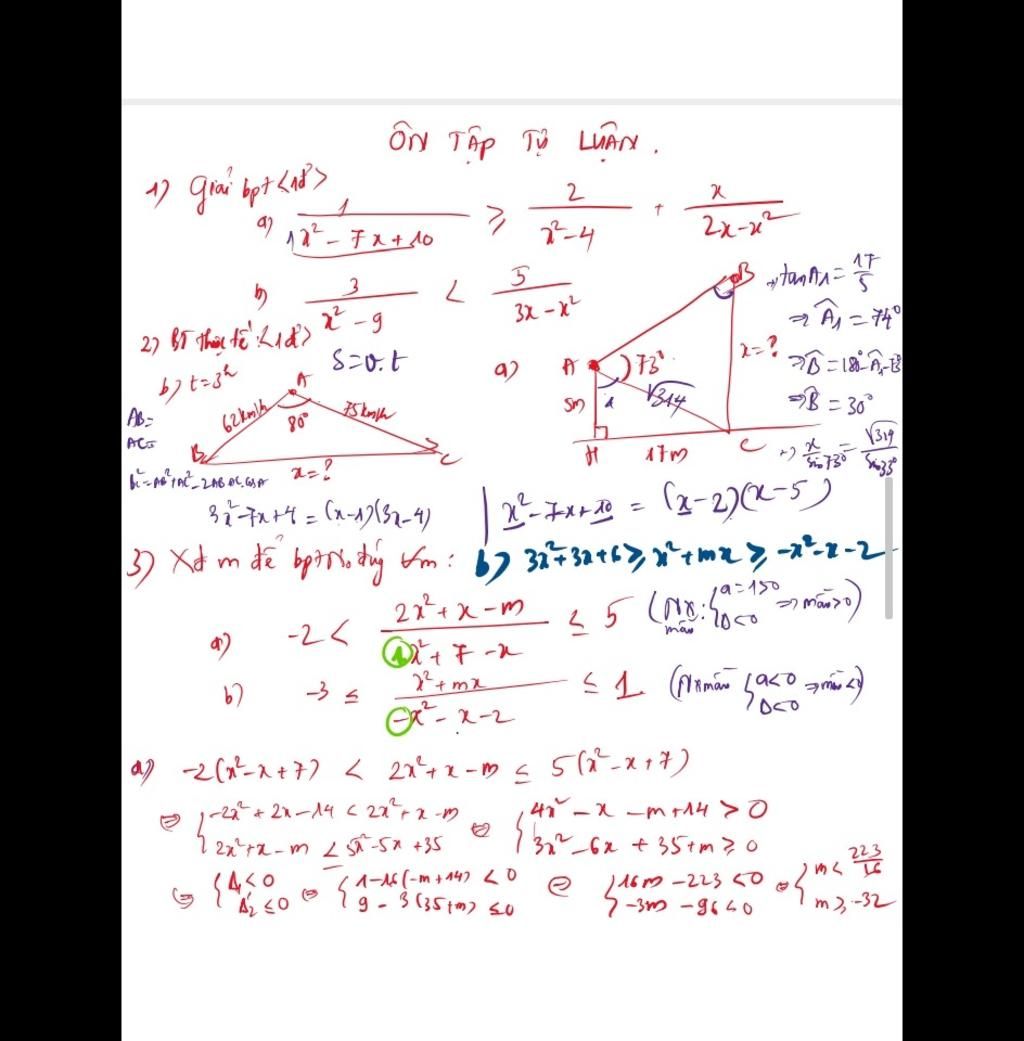 ÔN TẬP TỰ LUẬN.
1) Giải bpt <1đ>
a) 1/(1x² - 7x + 10) ≥ 2/(x² - 4) + x/(2x - x²)
b) 3/(x² - 9) < 5/(3x - x²)
2) BT thực tế: <1đ>
b) t = 3h
S = v.t
A
62km/h
75km/h
80°
AB=
AC=
B
C
x = ?
BC² = AB² + AC² - 2AB.AC.cosA
a)
A
B
73°
5m
1
√314
x = ?
H
17m
C
→ tanA1 = 17/5
⇒ Â1 = 74°
⇒ B̂ = 180° - Â1 - 73°
⇒ B̂ = 30°
→ x/sin73° = √314/sin33°
3x² - 7x + 4 = (x-1)(3x-4)
x² - 7x + 10 = (x-2)(x-5)
3) Xđ m để bpt No đúng ∀m:
b) 3x² + 3x + 6 ≥ x² + mx ≥ -x² - x - 2
a) -2 < (2x² + x - m)/(1x² + 7 - x) ≤ 5 (NX: mẫu {a = 1>0 Δ<0 ⇒ mẫu>0)
b) -3 ≤ (x² + mx)/(-x² - x - 2) ≤ 1 (NX mẫu {a<0 Δ<0 ⇒ mẫu<0)
a) -2(x² - x + 7) < 2x² + x - m ≤ 5(x² - x + 7)
⇔ {-2x² + 2x - 14 < 2x² + x - m ⇔ {4x² - x - m + 14 > 0
2x² + x - m ≤ 5x² - 5x + 35 3x² - 6x + 35 + m ≥ 0
⇔ {Δ1 < 0 ⇔ {1 - 16(-m + 14) < 0 ⇔ {16m - 223 < 0 ⇔ {m < 223/16
Δ'2 ≤ 0 9 - 3(35 + m) ≤ 0 -3m - 96 ≤ 0 m ≥ -32